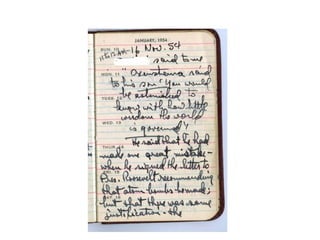 JANUARY, 1954
SUN. 10
16 Nov. 54
said to me
MON. 11
said
to his son' You would
be astonished to
TUES. 12
know with how little
wisdom the world
WED. 13
is governed'
He said that he had
made one great mistake -
when he signed the letter to
Pres. Roosevelt recommending
that atom bombs be made;
but that there was some
justification - the